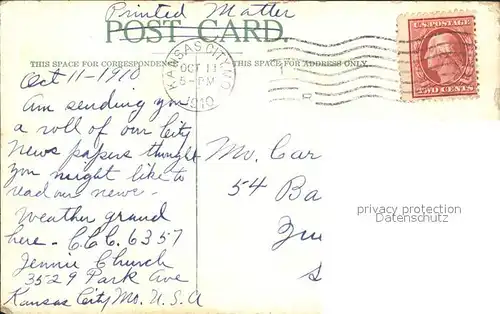 Printed Matter
POST CARD.
THIS SPACE FOR CORRESPONDENCE
THIS SPACE FOR ADDRESS ONLY.
KANSAS CITY, MO.
OCT 11
5-PM
1910
U.S. POSTAGE
TWO CENTS
Oct 11-1910
Am sending you
a roll of our City
News papers thought
you might like to
read our news-
Weather grand
here - C.C.C. 6357
Jennie Church
3529 Park Ave
Kansas City Mo. U.S.A
Mo. Car
54 Ba
privacy protection
Datenschutz